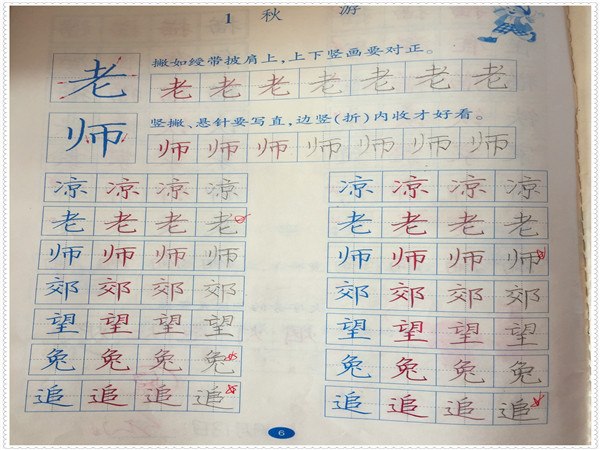 1 秋 游
撇如绶带披肩上，上下竖画要对正。
老 老 老 老 老 老 老 老
竖撇、悬针要写直，边竖（折）内收才好看。
师 师 师 师 师 师 师 师
凉 凉 凉 凉 凉 凉 凉 凉
老 老 老 老 老 老 老 老
师 师 师 师 师 师 师 师
郊 郊 郊 郊 郊 郊 郊 郊
望 望 望 望 望 望 望 望
兔 兔 兔 兔 兔 兔 兔 兔
追 追 追 追 追 追 追 追
6